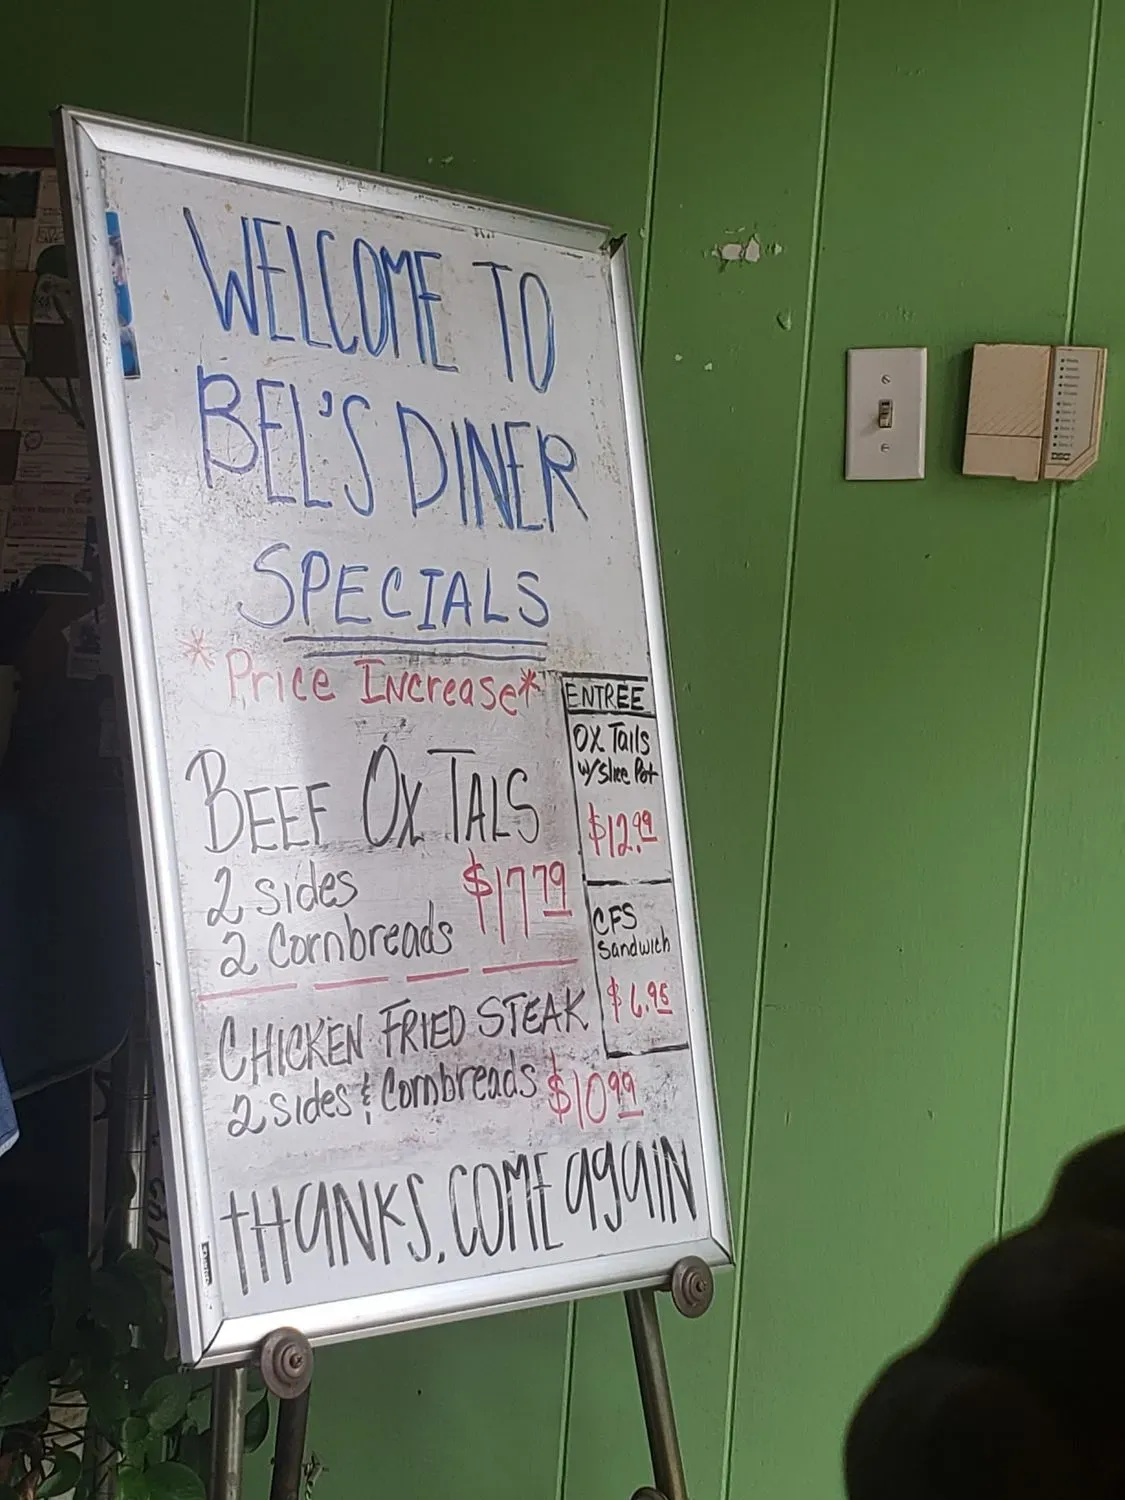 WELCOME TO
BEL'S DINER
SPECIALS
*Price Increase*
BEEF OX TALS
2 sides
2 Cornbreads
$17.79
CHICKEN FRIED STEAK
2 sides & Cornbreads $10.99
ENTREE
OX Tails
w/
$12.99
CFS
Sandwich
$6.95
THANKS, COME AGAIN
DSC